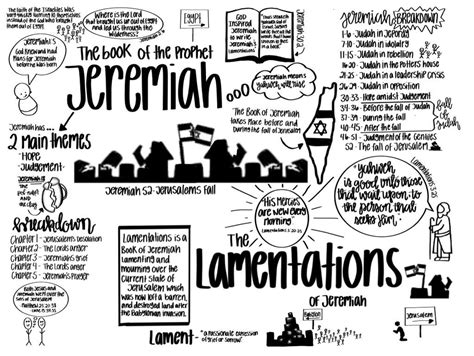 Where is the Lord
that brought us up out of Egypt
and led us through the
wilderness?
Egypt
God
inspired
Jeremiah
to write
Jeremiah &
Lamentations
Jeremiah Breakdown
1-6 - Judah in Jeopardy
7-10 - Judah in idolatry
11-15 - Judah in rebellion
16-20 - Judah in the Potters house
21-25 - Judah in a leadership crisis
26-29 - Judah in opposition
30-33 - Hope amidst Judgement
34-36 - Before the fall of Judah
37-39 - During the fall
40-45 - After the fall
46-51 - Judgement of the Gentiles
52 - The fall of Jerusalem
fall of
Judah
Jeremiah 1:5
God knew and had
plans for Jeremiah
before he was born
The book of the Prophet
Jeremiah
Jeremiah means
Yahweh will rise
The Book of Jeremiah
takes place before and
during the fall of Jerusalem
Jeremiah has...
2 Main themes
- Hope
- Judgement
Jeremiah 52 - Jerusalem's Fall
"His mercies
are new every
morning"
Lamentations 3:22-23
Lamentations 3:25
"Yahweh
is good to those
that wait upon; to
the person that
seeks him."
breakdown
Chapter 1 - Jerusalem's Desolation
Chapter 2 - The Lords anger
Chapter 3 - Jeremiah's grief
Chapter 4 - The Lords anger
Chapter 5 - Jeremiah's prayer
Lamentations is a
Book of Jeremiah
lamenting and
mourning over the
current state of
Jerusalem which
was now left a barren,
and destroyed land after
the Babylonian invasion.
The
Lamentations
of Jeremiah
Both Jesus and
Jeremiah wept over the
sins of Jerusalem
Lament - "a passionate expression
of grief or sorrow"
Babylon
Jerusalem